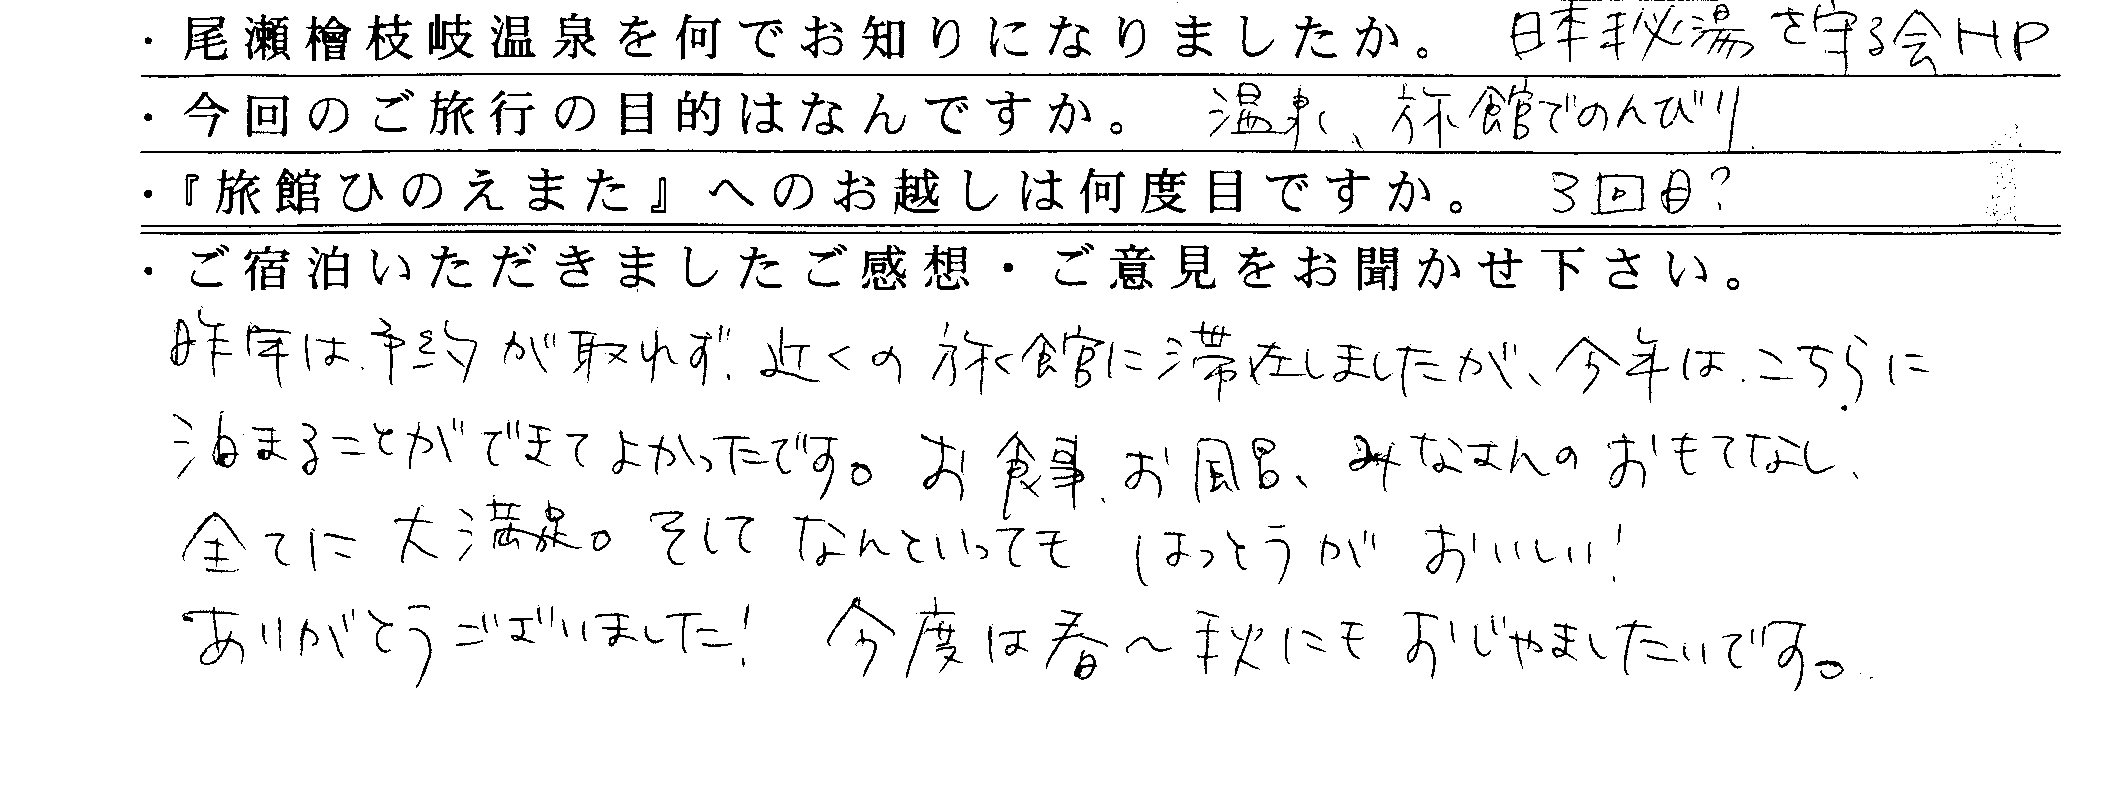 ・尾瀬檜枝岐温泉を何でお知りになりましたか。 日本秘湯を守る会HP
・今回のご旅行の目的はなんですか。 温泉、旅館でのんびり
・『旅館ひのえまた』へのお越しは何度目ですか。 3回目?
・ご宿泊いただきましたご感想・ご意見をお聞かせ下さい。
昨年は、予約が取れず、近くの旅館に滞在しましたが、今年は、こちらに
泊まることができてよかったです。お食事、お風呂、みなさんのおもてなし、
全てに大満足。そしてなんといっても はっとうが おいしい!
ありがとうございました! 今度は春～秋にもおじゃましたいです。